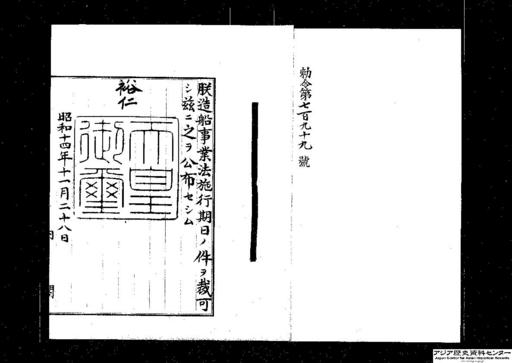 勅令第七百九十九號
朕造船事業法施行期日ノ件ヲ裁可
シ茲ニ之ヲ公布セシム
裕仁
天皇
御璽
昭和十四年十一月二十八日
アジア歴史資料センター
Japan Center for Asian Historical Records